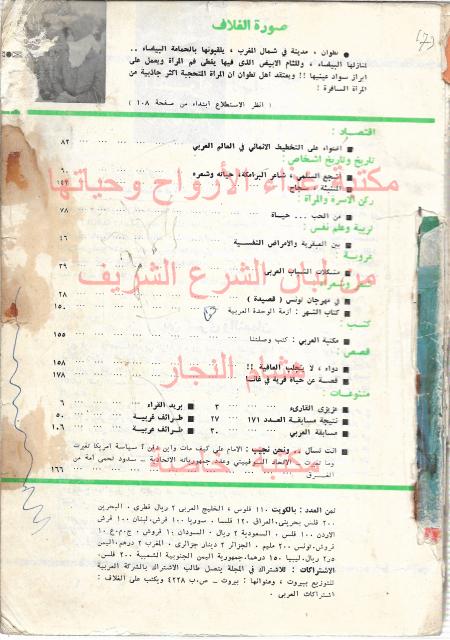 (7)
صورة الغلاف
● تطوان ، مدينة في شمال المغرب ، يلقبونها بالحمامة البيضاء ..
لمنازلها البيضاء ، وللثام الابيض الذي فيها يغطي فم المرأة ويعمل على
ابراز سواد عينيها !! ويعتقد أهل تطوان ان المرأة المتحجبة اكثر جاذبية من
المرأة السافرة !
( انظر الاستطلاع ابتداء من صفحة ١٠٨ )
اقتصاد :
■ اضواء على التخطيط الانمائي في العالم العربي ٨٢
تاريخ وتاريخ اشخاص :
■ اشجع السلمي ، شاعر البرامكة، حياته وشعره ٦٠
مكتبة غذاء الأرواح وحياتها
سجاح ١٤٢
ركن الاسرة والمرأة :
■ من الحب .. حياة ٧٨
تربية وعلم نفس :
■ بين العبقرية والامراض النفسية ٤٦
عروبة :
■ مشكلات الشباب العربي ٣٩
من لبان الشرع الشريف
■ في مهرجان تونس ( قصيدة ) ٢٨
■ كتاب الشهر : ازمة الوحدة العربية ١٥٠
كتب :
■ مكتبة العربي : كتب وصلتنا ١٥٥
قصص :
■ دواء ، لا يجلب العافية !! ١٥٨
■ قصة عن حياة قرية في غانا ١٧٨
هشام النجار
منوعات :
■ عزيزي القارىء ٣ ■ بريد القراء ٦
■ نتيجة مسابقة العدد ١٧١ ٢٧ ■ طرائف غربية ٥٠
■ مسابقة العربي ٣٠ ■ طرائف عربية ١٠٦
■ انت تسأل .. ونحن نجيب : الامام علي كيف مات واين دفن ؟ سياسة امريكا تغيرت
وما تغيرت ـ الاتحاد السوفييتي وعدد جمهورياته الاتحادية ـ سدود تحمي أمة من
الغرق ١٦٦
مكتبة خاصة
ثمن العدد : بالكويت ١١٠ فلوس ، الخليج العربي ٢ ريال قطري ، البحرين
٢٠٠ فلس بحريني، العراق ١٢٠ فلسا ، سوريا ١٠٠ قرش، لبنان ١٠٠ قرش
الاردن ١٠٠ فلس ، السعودية ٢ ريال ، السودان ١٠ قروش ، ج.م.ع ١٠
قروش، تونس ٢٠٠ مليم ، الجزائر ٢ دينار جزائري ، المغرب ٢ درهم، اليمن
ريال، ليبيا ١٥٠ درهما، جمهورية اليمن الجنوبية الشعبية ٢٠٠ فلس.
الاشتراكات : للاشتراك في المجلة يتصل طالب الاشتراك بالشركة العربية
للتوزيع ببيروت ، وعنوانها : بيروت ـ ص.ب ٤٢٢٨ ويكتب على الغلاف :
اشتراكات العربي .